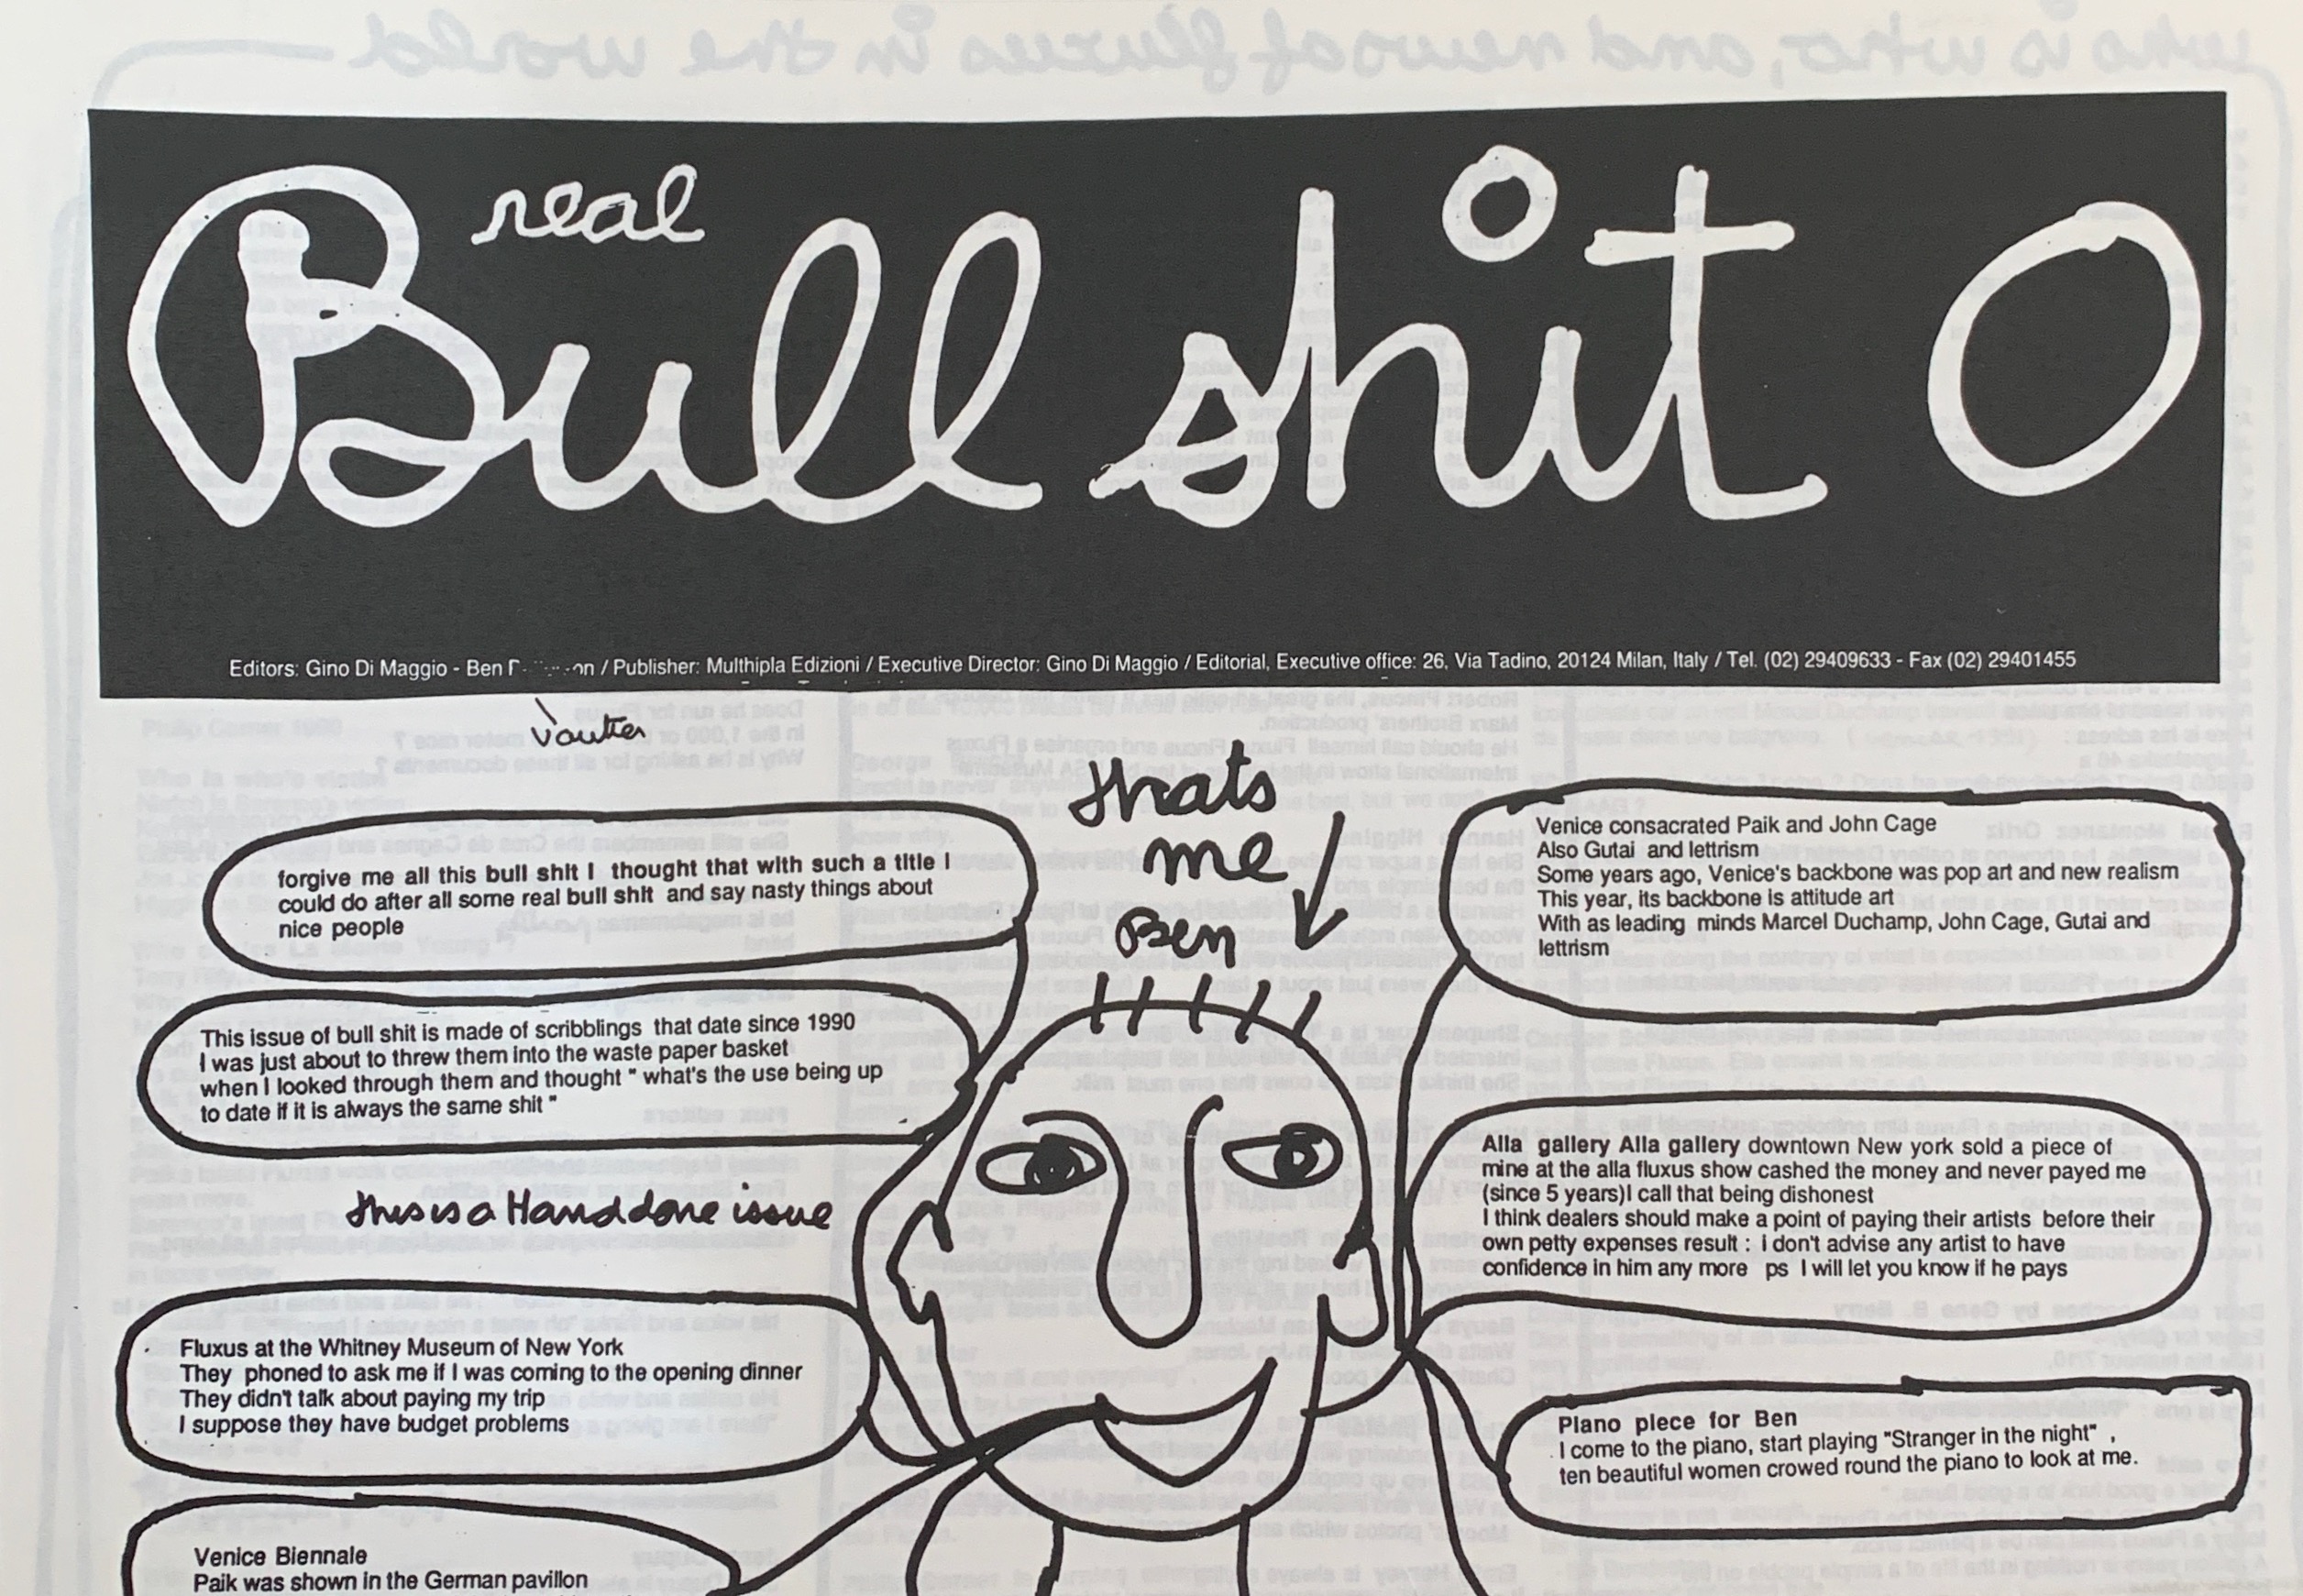 real
Bull shit O
Editors: Gino Di Maggio - Ben / Publisher: Multhipla Edizioni / Executive Director: Gino Di Maggio / Editorial, Executive office: 26, Via Tadino, 20124 Milan, Italy / Tel. (02) 29409633 - Fax (02) 29401455
Vautier
thats
me
Ben
forgive me all this bull shit I thought that with such a title I
could do after all some real bull shit and say nasty things about
nice people
This issue of bull shit is made of scribblings that date since 1990
I was just about to threw them into the waste paper basket
when I looked through them and thought " what's the use being up
to date if it is always the same shit "
this is a Hand done issue
Fluxus at the Whitney Museum of New York
They phoned to ask me if I was coming to the opening dinner
They didn't talk about paying my trip
I suppose they have budget problems
Venice Biennale
Paik was shown in the German pavillon
Venice consacrated Paik and John Cage
Also Gutai and lettrism
Some years ago, Venice's backbone was pop art and new realism
This year, its backbone is attitude art
With as leading minds Marcel Duchamp, John Cage, Gutai and
lettrism
Alla gallery Alla gallery downtown New york sold a piece of
mine at the alla fluxus show cashed the money and never payed me
(since 5 years)I call that being dishonest
I think dealers should make a point of paying their artists before their
own petty expenses result : I don't advise any artist to have
confidence in him any more ps I will let you know if he pays
Piano piece for Ben
I come to the piano, start playing "Stranger in the night" ,
ten beautiful women crowed round the piano to look at me.
who is who, and news of fluxus in the world